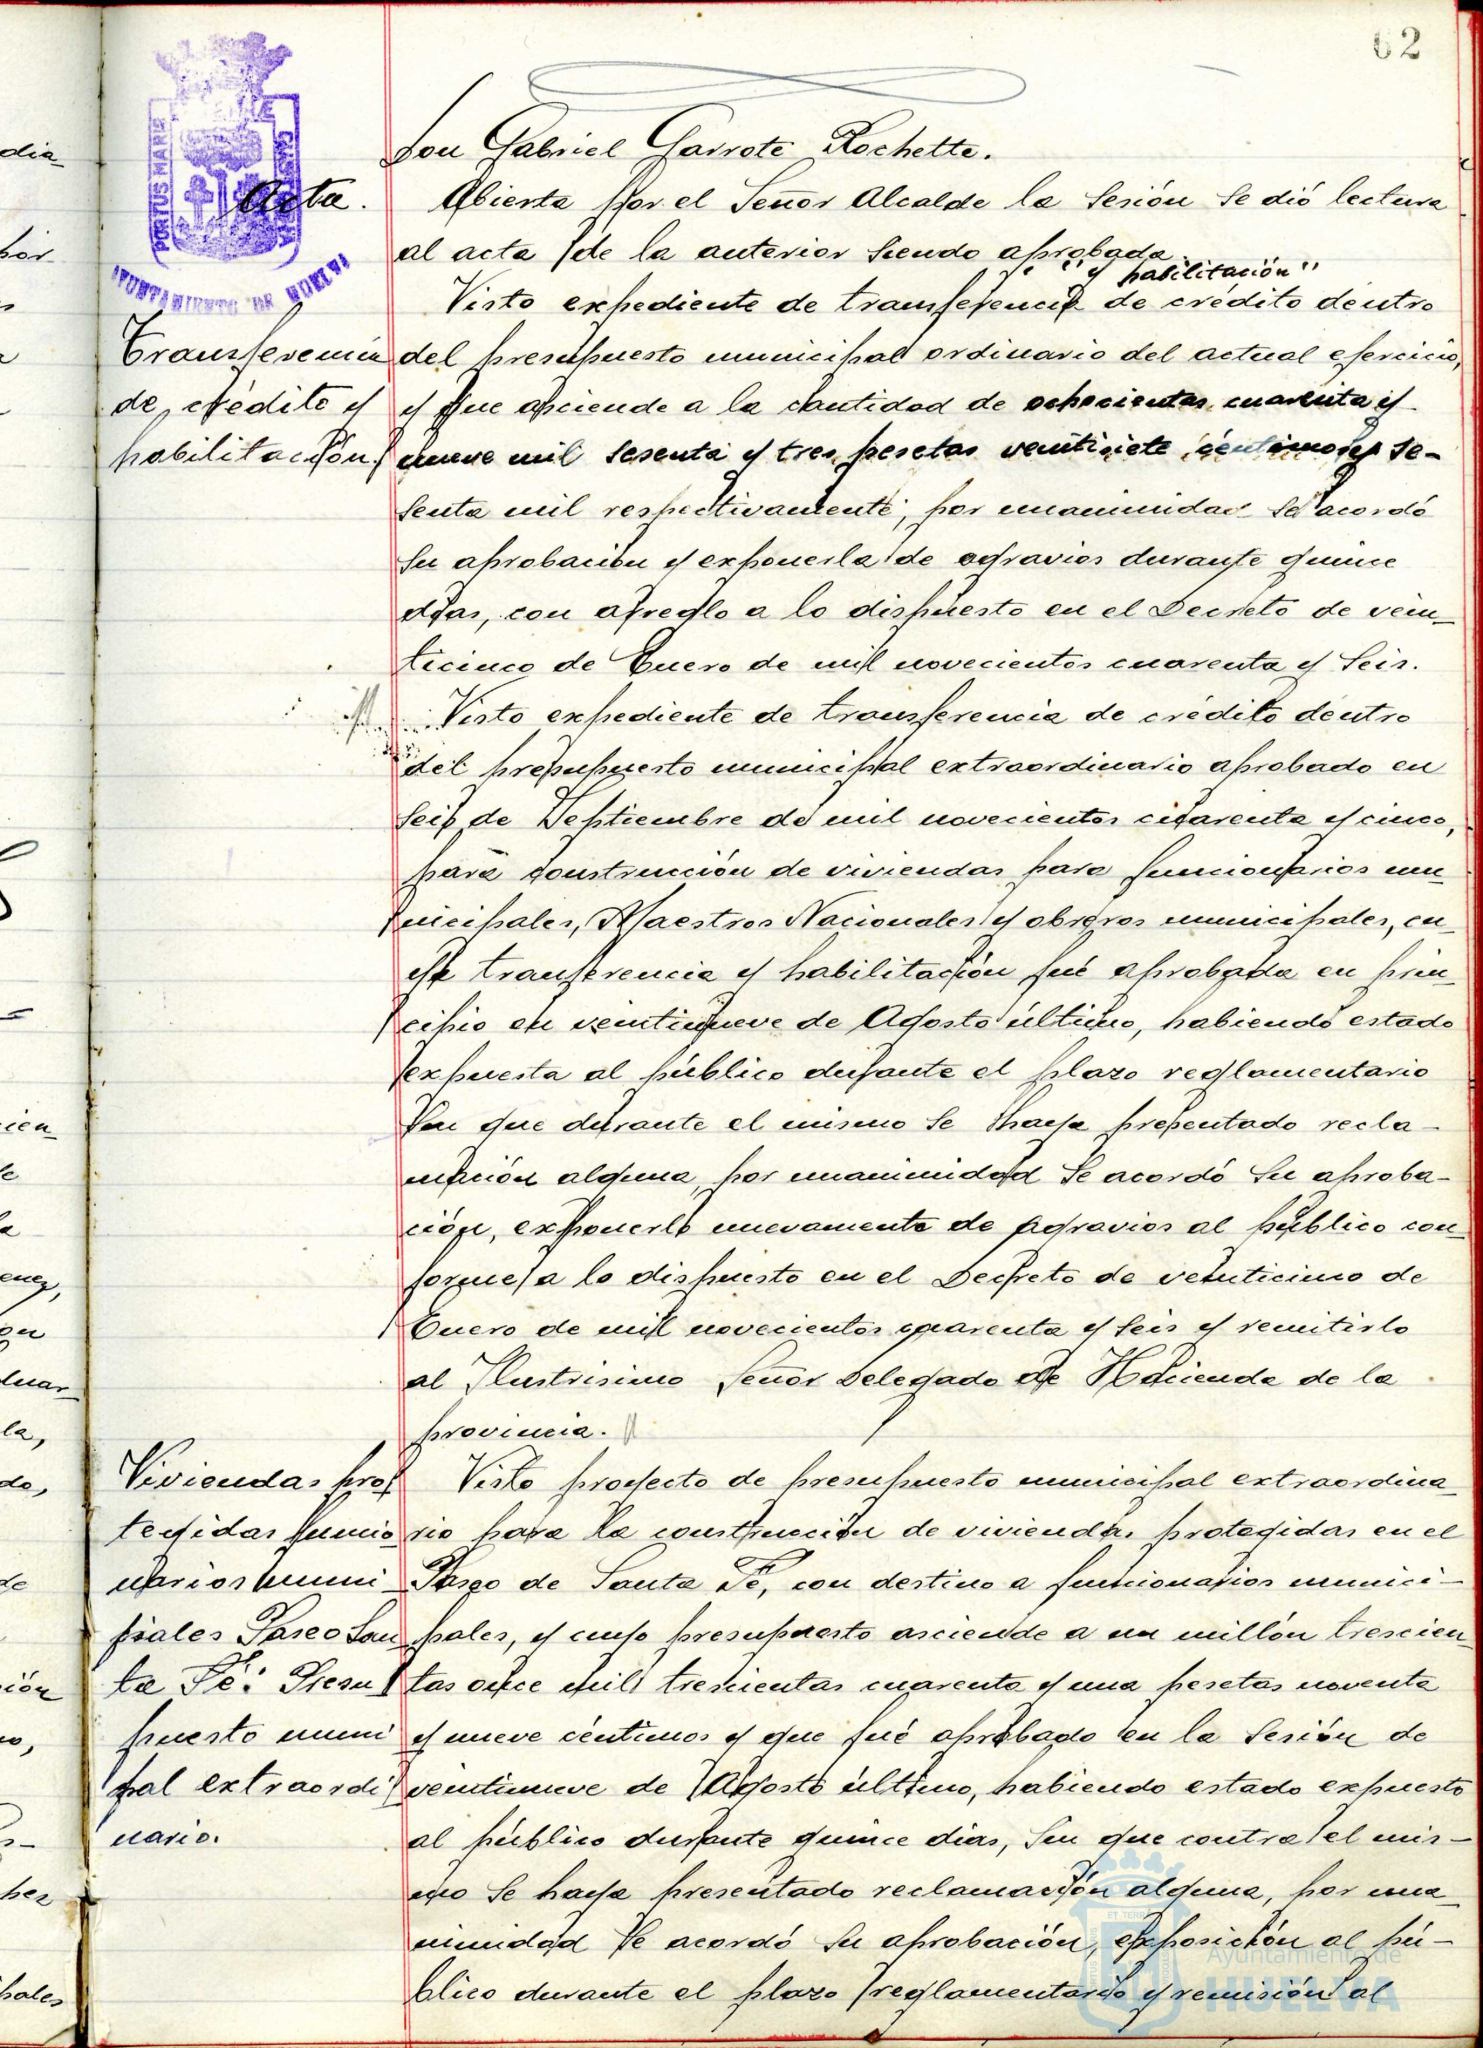 62
PORTUS MARIS
AYUNTAMIENTO DE HUELVA
Don Gabriel Garrote Rochette.
Acta.
Abierta por el Señor Alcalde la Sesión se dió lectura
al acta de la anterior siendo aprobada.
"y habilitación"
Visto expediente de transferencia de crédito dentro
del presupuesto municipal ordinario del actual ejercicio,
y que asciende a la cantidad de ochocientas cuarenta y
nueve mil sesenta y tres pesetas veintisiete céntimos y se-
senta mil respectivamente, por unanimidad se acordó
su aprobación y exponerla de agravios durante quince
días, con arreglo a lo dispuesto en el Decreto de vein-
ticinco de Enero de mil novecientos cuarenta y seis.
Transferencia
de crédito y
habilitación
Visto expediente de transferencia de crédito dentro
del presupuesto municipal extraordinario aprobado en
seis de Septiembre de mil novecientos cuarenta y cinco,
para construcción de viviendas para funcionarios mu-
nicipales, Maestros Nacionales y obreros municipales, cu-
ya transferencia y habilitación fué aprobada en prin-
cipio en veintinueve de Agosto último, habiendo estado
expuesta al público durante el plazo reglamentario
sin que durante el mismo se haya presentado recla-
mación alguna, por unanimidad se acordó su aproba-
ción, exponerlo nuevamente de agravios al público con-
forme a lo dispuesto en el Decreto de veinticinco de
Enero de mil novecientos cuarenta y seis y remitirlo
al Ilustrisimo Señor Delegado de Hacienda de la
provincia.
Viviendas pro-
tegidas funcio
narios muni-
pales Paseo San
ta Fé: Presu
puesto muni
pal extraordi
nario.
Visto proyecto de presupuesto municipal extraordina-
rio para la construcción de viviendas protegidas en el
Paseo de Santa Fé, con destino a funcionarios munici-
pales, y cuyo presupuesto asciende a un millón trescien-
tas once mil trescientas cuarenta y una pesetas noventa
y nueve céntimos y que fué aprobado en la sesión de
veintinueve de Agosto último, habiendo estado expuesto
al público durante quince días, sin que contra el mis-
mo se haya presentado reclamación alguna, por una-
nimidad se acordó su aprobación, exposición al pú-
blico durante el plazo reglamentario y remisión al
Ayuntamiento de
HUELVA